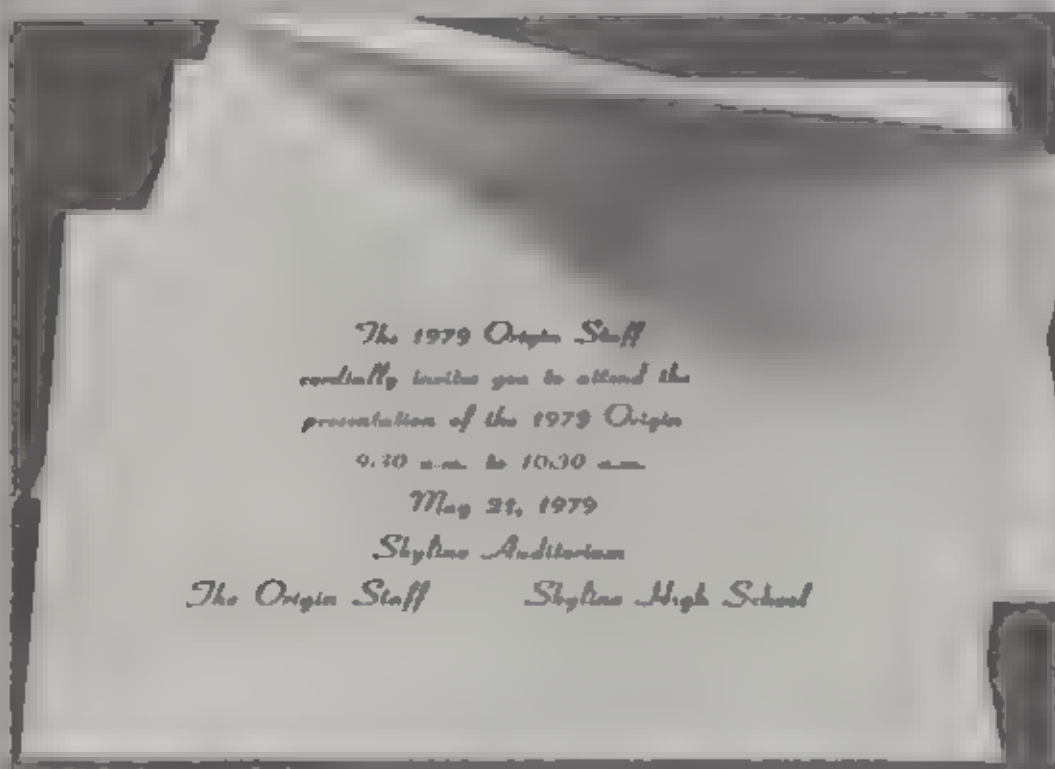 The 1979 Origin Staff
cordially invites you to attend the
presentation of the 1979 Origin
9:30 a.m. to 10:30 a.m.
May 21, 1979
Skyline Auditorium
The Origin Staff Skyline High School